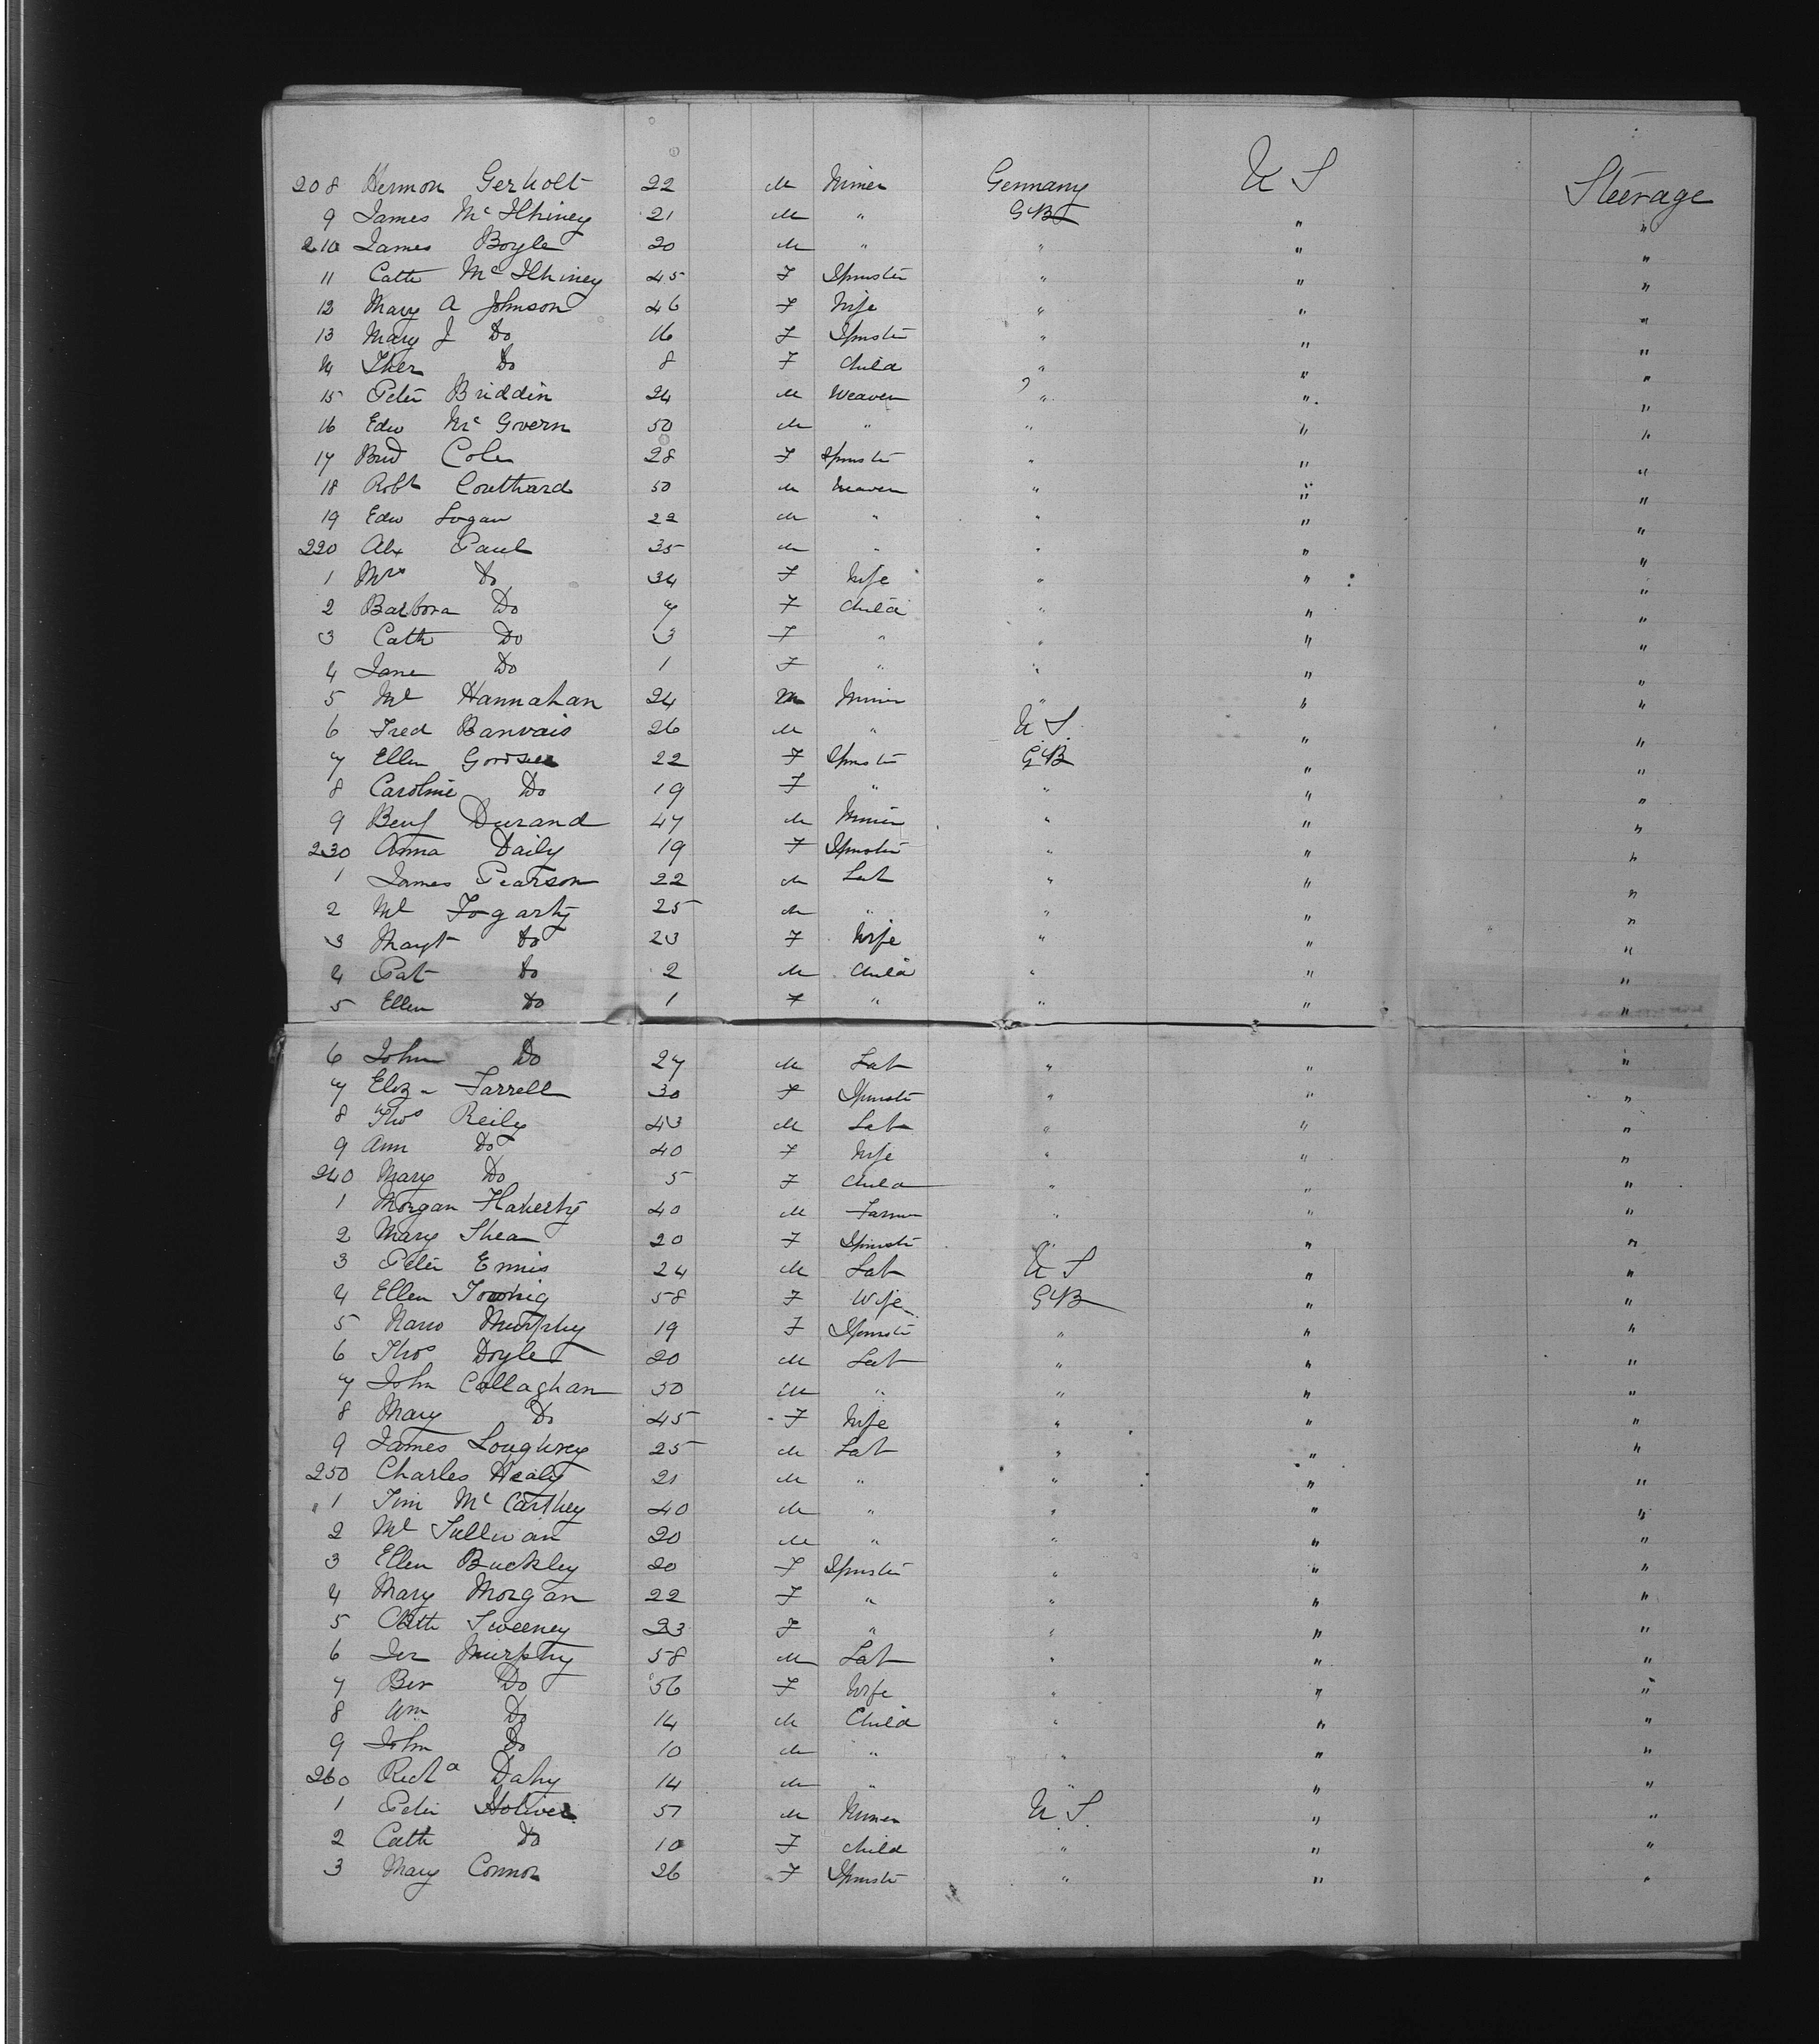 208 Hermon Gerholt 22 M Miner Germany U S Steerage
9 James Mc Ilhiney 21 M " GB " "
210 James Boyle 20 M " " " "
11 Cath Mc Ilhiney 45 F Spinster " " "
12 Mary A Johnson 46 F Wife " " "
13 Mary J Do 16 F Spinster " " "
14 Do 8 F Child " " "
15 Peter Briddin 24 M Weaver " " "
16 Edw Mc Govern 50 M " " " "
17 Brid Cole 28 F Spinster " " "
18 Robt Coulthard 50 M Weaver " " "
19 Edw Logan 22 M " " " "
220 Alx Paul 35 M " " " "
1 Mrs Do 34 F Wife " " "
2 Barbora Do 7 F Child " " "
3 Cath Do 3 F " " " "
4 Jane Do 1 F " " " "
5 Ml Hannahan 24 M Miner " " "
6 Fred Banvais 26 M " U S. " "
7 Ellen 22 F Spinster GB " "
8 Caroline Do 19 F " " " "
9 Benj Durand 47 M Miner " " "
230 Anna Daily 19 F Spinster " " "
1 James Pearson 22 M Lab " " "
2 Ml Fogarty 25 M " " " "
3 Margt Do 23 F Wife " " "
4 Pat Do 2 M Child " " "
5 Ellen Do 1 F " " " "
6 John Do 27 M Lab " " "
7 Eliza Farrell 30 F Spinster " " "
8 Thos Reily 43 M Lab " " "
9 Ann Do 40 F Wife " " "
240 Mary Do 5 F Child " " "
1 Morgan Flaherty 40 M Farmer " " "
2 Mary Shea 20 F Spinster " " "
3 Peter Ennis 24 M Lab U S " "
4 Ellen Towhig 58 F Wife GB " "
5 Nano Murphy 19 F Spinster " " "
6 Thos Doyle 20 M Lab " " "
7 John Callaghan 50 M " " " "
8 Mary Do 45 F Wife " " "
9 James Loughrey 25 M Lab " " "
250 Charles Healy 21 M " " " "
1 Tim Mc Carthey 40 M " " " "
2 Ml Sullivan 20 M " " " "
3 Ellen Buckley 20 F Spinster " " "
4 Mary Morgan 22 F " " " "
5 Cath Sweeney 23 F " " " "
6 Jer Murphy 58 M Lab " " "
7 Do 56 F Wife " " "
8 Wm Do 14 M Child " " "
9 John Do 10 M " " " "
260 Richd Dahy 14 M " " " "
1 Peter Holiver 51 M Miner U. S. " "
2 Cath Do 10 F Child " " "
3 Mary Connor 26 F Spinster " " "